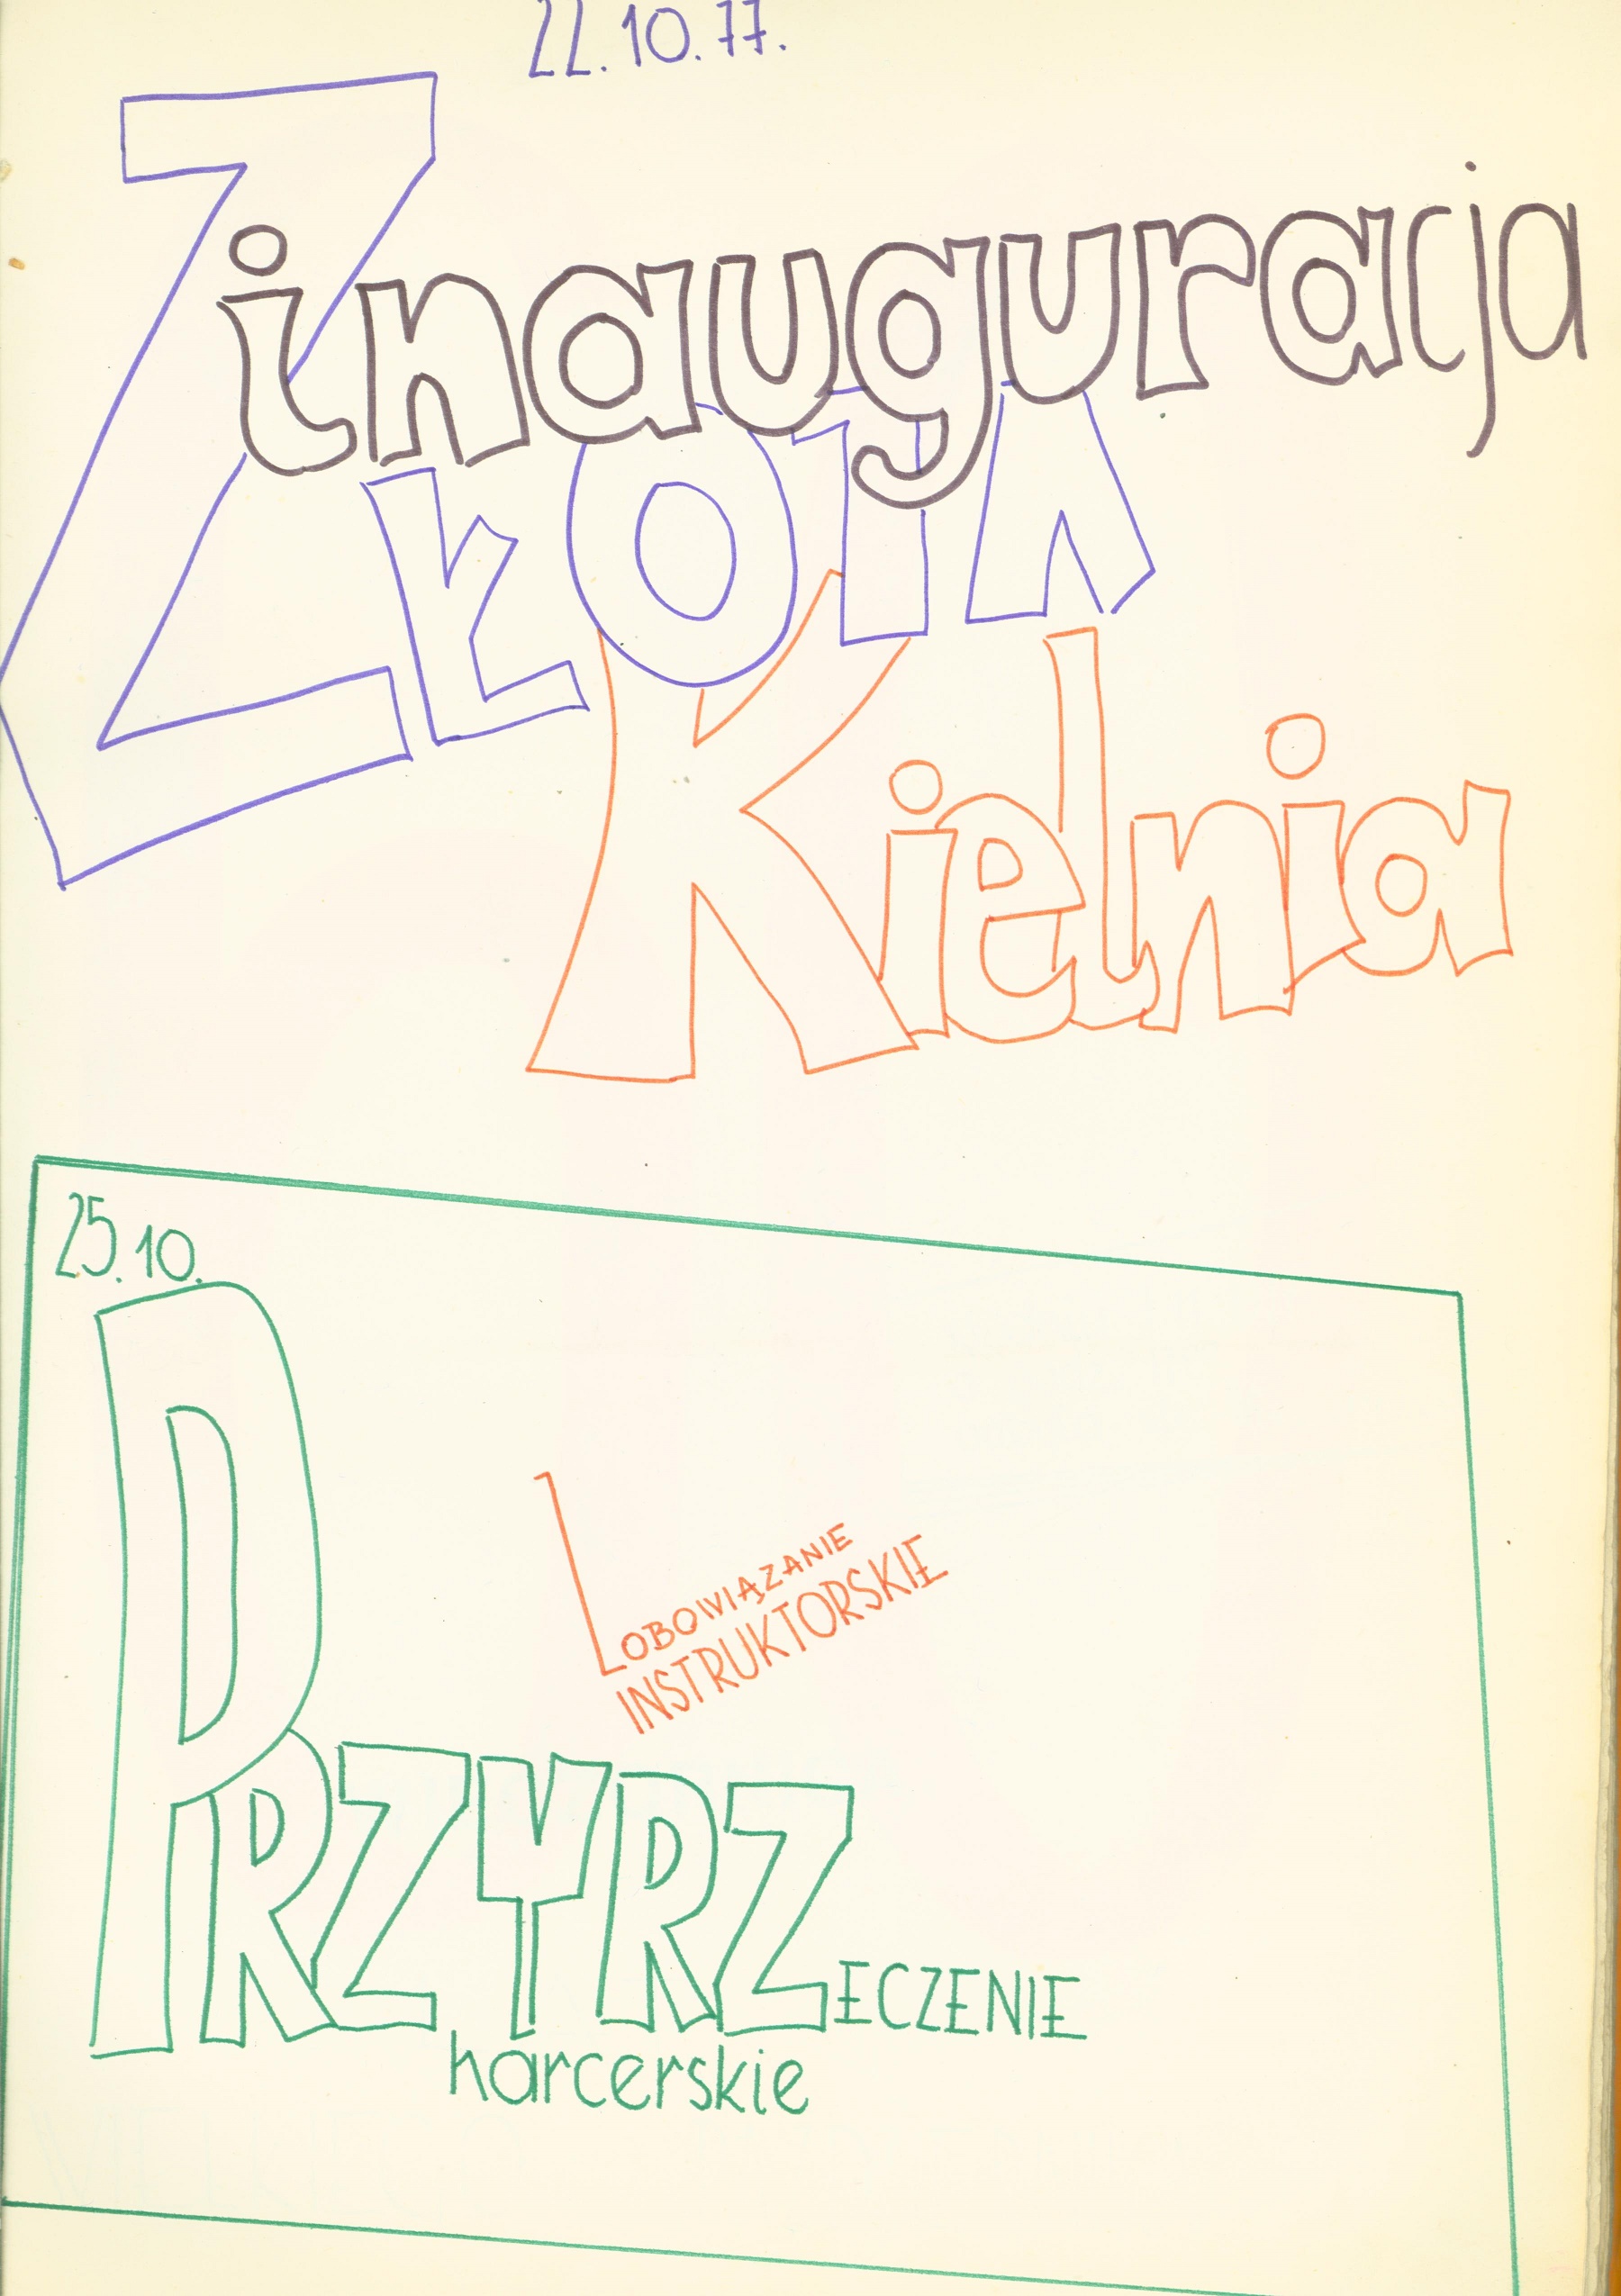 22.10.77.
inauguracja
ZŁOTA
Kielnia
25.10.
ZOBOWIĄZANIE
INSTRUKTORSKIE
PRZYRZECZENIE
harcerskie